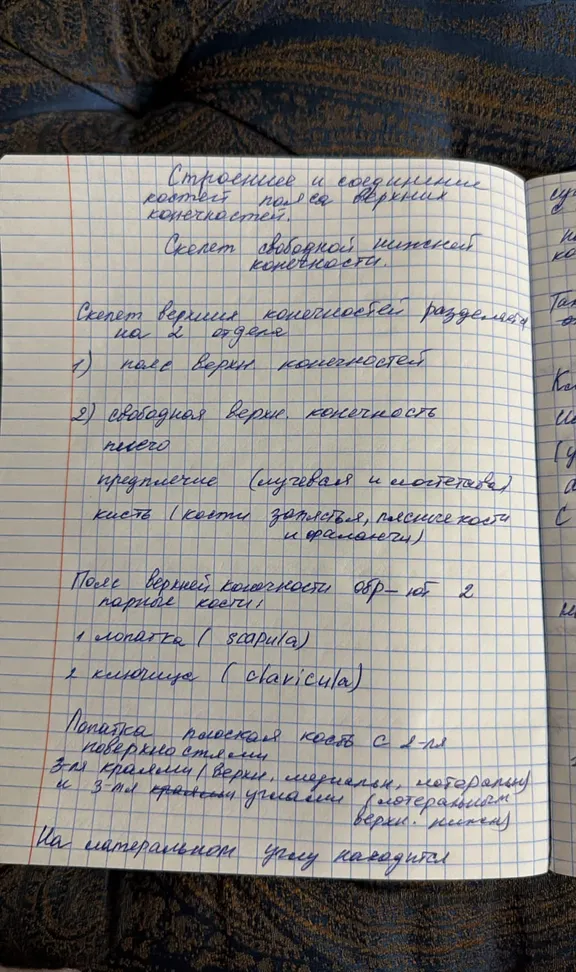 Строение и соединения
костей пояса верхних
конечностей.
Скелет свободной нижней
конечности.
Скелет верхних конечностей разделяется
на 2 отдела
1) пояс верхн конечностей
2) свободная верхн. конечность
плечо
предплечие (лучевая и локтевая)
кисть (кости запястья, плюсные кости
и фаланги)
Пояс верхней конечности обр-ют 2
парные кости:
1 лопатка ( scapula)
2 ключица ( clavicula)
Лопатка плоская кость с 2-мя
поверхностями
3-мя краями (верхн, медиальн, лотеральн)
и 3-мя краями углами (лотеральным
верхн. нижн)
На латеральном углу находится